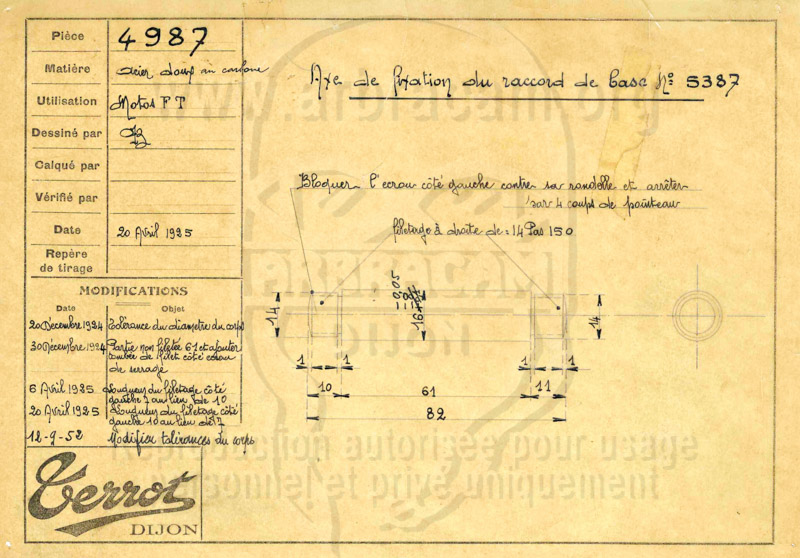 Pièce 4987
Matière acier doux au carbone
Utilisation Motos FT
Dessiné par
Calqué par
Vérifié par
Date 20 Avril 1925
Repère
de tirage
MODIFICATIONS
Date Objet
20 Décembre 1924 Tolérance du diamètre du corps
30 Décembre 1924 Partie non filetée 61 et ajouter
tombée de filet côté écrou
de serrage
6 Avril 1925 Longueur du filetage côté
gauche 7 au lieu de 10
20 Avril 1925 Longueur du filetage côté
gauche 10 au lieu de 7
12-9-52 Modifier tolérances du corps
Terrot
DIJON
Axe de fixation du raccord de base N° 5387
Bloquer l'écrou côté gauche contre sa rondelle et arrêter
par 4 coups de pointeau
filetage à droite de : 14 Pas 150
14
16
-0,05
14
1 1 1 1
10 61 11
82
www.arbracam.org
ARBRACAM
DIJON
Reproduction autorisée pour usage
personnel et privé uniquement